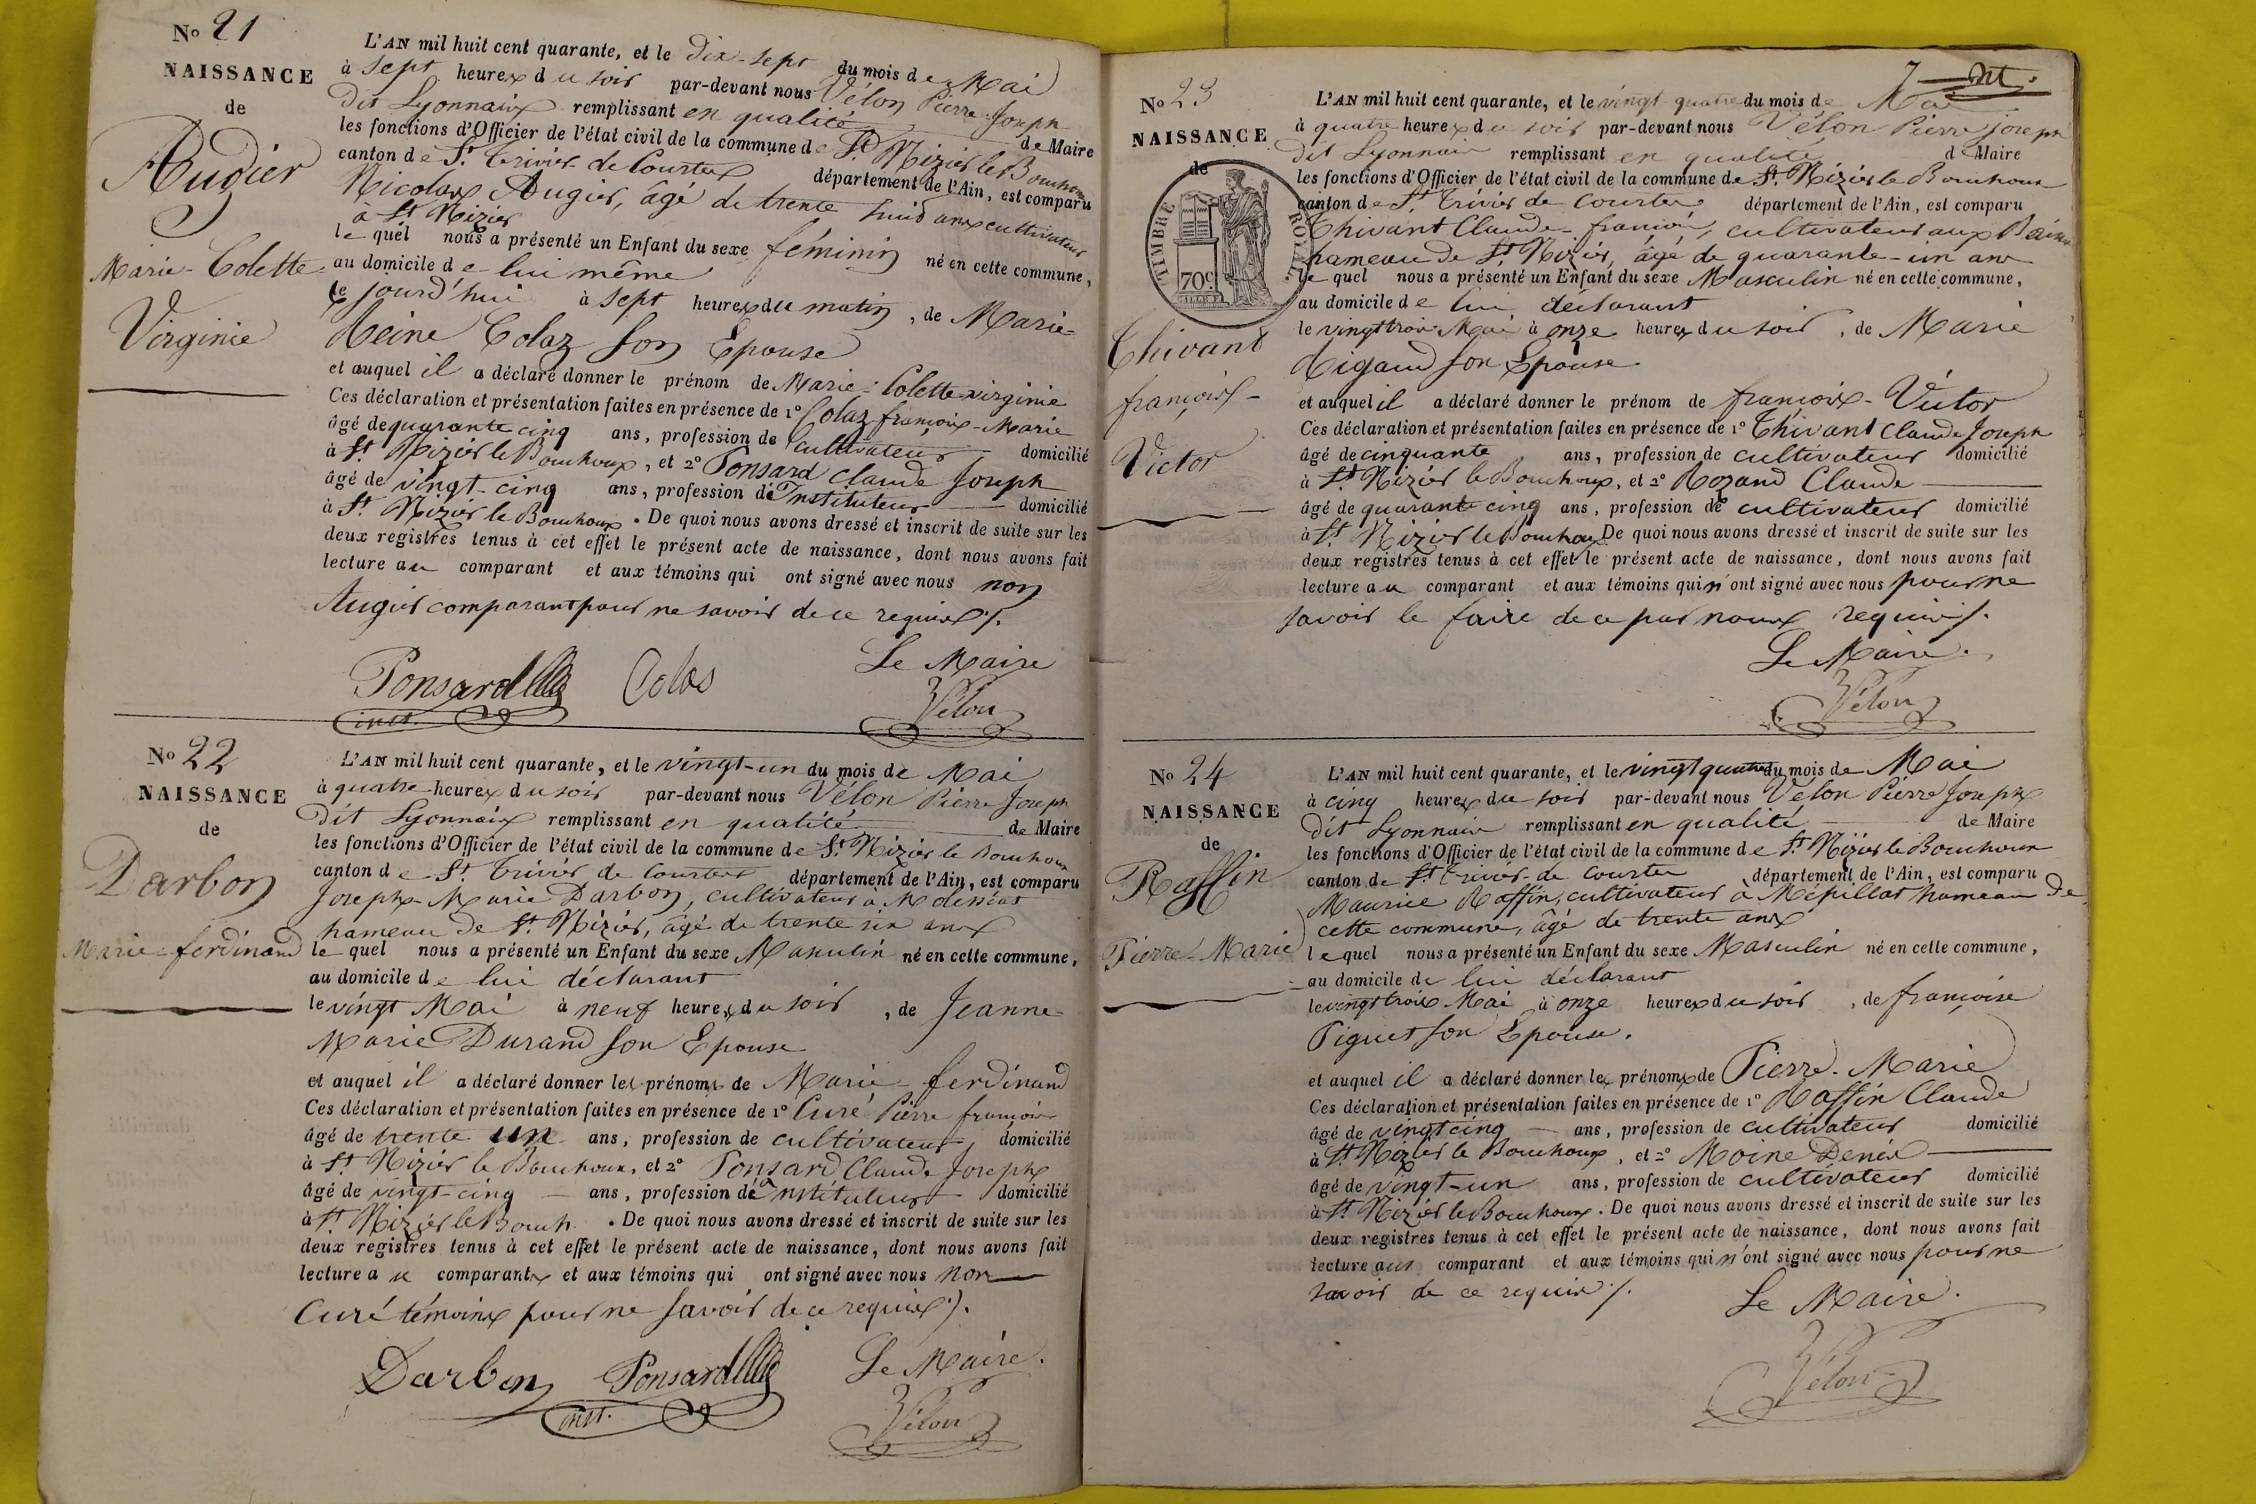 No 21
NAISSANCE
de
Augier
Marie-Colette
Virginie
L'AN mil huit cent quarante, et le Dix-sept du mois de Mai
à sept heures du soir par-devant nous Vélon Pierre Joseph
dit Lyonnais remplissant en qualité de Maire
les fonctions d'Officier de l'état civil de la commune de St Nizier le Bouchoux
canton de St Trivier de Courtes département de l'Ain, est comparu
Nicolas Augier, âgé de trente huit ans cultivateur
à St Nizier
le quel nous a présenté un Enfant du sexe féminin né en cette commune,
au domicile de lui même
le jourd'hui à sept heures du matin, de Marie-
Reine Colaz son Epouse
et auquel il a déclaré donner le prénom de Marie-Colette-virginie
Ces déclaration et présentation faites en présence de 1º Colaz françois-Marie
âgé de quarante cinq ans, profession de cultivateur domicilié
à St Nizier le Bouchoux, et 2º Ponsard Claude Joseph
âgé de vingt-cinq ans, profession d'Instituteur domicilié
à St Nizier le Bouchoux. De quoi nous avons dressé et inscrit de suite sur les
deux registres tenus à cet effet le présent acte de naissance, dont nous avons fait
lecture au comparant et aux témoins qui ont signé avec nous non
Augier comparant pour ne savoir de ce requis ./.
Le Maire
Ponsard Colas Vélon
inst.
No 22
NAISSANCE
de
Darbon
Marie-ferdinand
L'AN mil huit cent quarante, et le vingt-un du mois de Mai
à quatre heures du soir par-devant nous Vélon Pierre Joseph
dit Lyonnais remplissant en qualité de Maire
les fonctions d'Officier de l'état civil de la commune de St Nizier le Bouchoux
canton de St Trivier de Courtes département de l'Ain, est comparu
Joseph-Marie Darbon, cultivateur a
hameau de St Nizier, âgé de trente six ans
le quel nous a présenté un Enfant du sexe Masculin né en cette commune,
au domicile de lui déclarant
le vingt Mai à neuf heures du soir, de Jeanne-
Marie Durand son Epouse
et auquel il a déclaré donner les prénoms de Marie-ferdinand
Ces déclaration et présentation faites en présence de 1º Curé Pierre françois
âgé de trente un ans, profession de cultivateur, domicilié
à St Nizier le Bouchoux, et 2º Ponsard Claude Joseph
âgé de vingt-cinq ans, profession d'instituteur domicilié
à St Nizier le Bouch. De quoi nous avons dressé et inscrit de suite sur les
deux registres tenus à cet effet le présent acte de naissance, dont nous avons fait
lecture au comparant et aux témoins qui ont signé avec nous non
Curé témoins pour ne savoir de ce requis ./.
Le Maire.
Darbon Ponsard Vélon
inst.
No 23
NAISSANCE
de
TIMBRE ROYAL
70c
Thivant
françois-
Victor
L'AN mil huit cent quarante, et le vingt quatre du mois de Mai
à quatre heures du soir par-devant nous Vélon Pierre Joseph
dit Lyonnais remplissant en qualité d Maire
les fonctions d'Officier de l'état civil de la commune de St Nizier le Bouchoux
canton de St Trivier de Courtes département de l'Ain, est comparu
Thivant Claude-françois, cultivateur aux
hameau de St Nizier, âgé de quarante-un ans
le quel nous a présenté un Enfant du sexe Masculin né en cette commune,
au domicile de lui déclarant
le vingt trois Mai à onze heures du soir, de Marie
Rigaud son Epouse.
et auquel il a déclaré donner le prénom de françois-Victor
Ces déclaration et présentation faites en présence de 1º Thivant Claude Joseph
âgé de cinquante ans, profession de cultivateur domicilié
à St Nizier le Bouchoux, et 2º Rozand Claude
âgé de quarante cinq ans, profession de cultivateur domicilié
à St Nizier le Bouchoux De quoi nous avons dressé et inscrit de suite sur les
deux registres tenus à cet effet le présent acte de naissance, dont nous avons fait
lecture au comparant et aux témoins qui n'ont signé avec nous pour ne
savoir le faire de ce par nous requis ./.
Le Maire.
Vélon
No 24
NAISSANCE
de
Raffin
Pierre-Marie
L'AN mil huit cent quarante, et le vingt quatre du mois de Mai
à cinq heures du soir par-devant nous Vélon Pierre Joseph
dit Lyonnais remplissant en qualité de Maire
les fonctions d'Officier de l'état civil de la commune de St Nizier le Bouchoux
canton de St Trivier de Courtes département de l'Ain, est comparu
Maurice Raffin, cultivateur à Mépillat hameau De
cette commune, âgé de trente ans
le quel nous a présenté un Enfant du sexe Masculin né en cette commune,
au domicile de lui déclarant
le vingt trois Mai à onze heures du soir, de françoise
Piguet son Epouse.
et auquel il a déclaré donner les prénoms de Pierre-Marie
Ces déclaration et présentation faites en présence de 1º Raffin Claude
âgé de vingt cinq ans, profession de cultivateur domicilié
à St Nizier le Bouchoux, et 2º Moine Denis
âgé de vingt-un ans, profession de cultivateur domicilié
à St Nizier le Bouchoux. De quoi nous avons dressé et inscrit de suite sur les
deux registres tenus à cet effet le présent acte de naissance, dont nous avons fait
lecture aux comparant et aux témoins qui n'ont signé avec nous pour ne
savoir de ce requis ./.
Le Maire.
Vélon